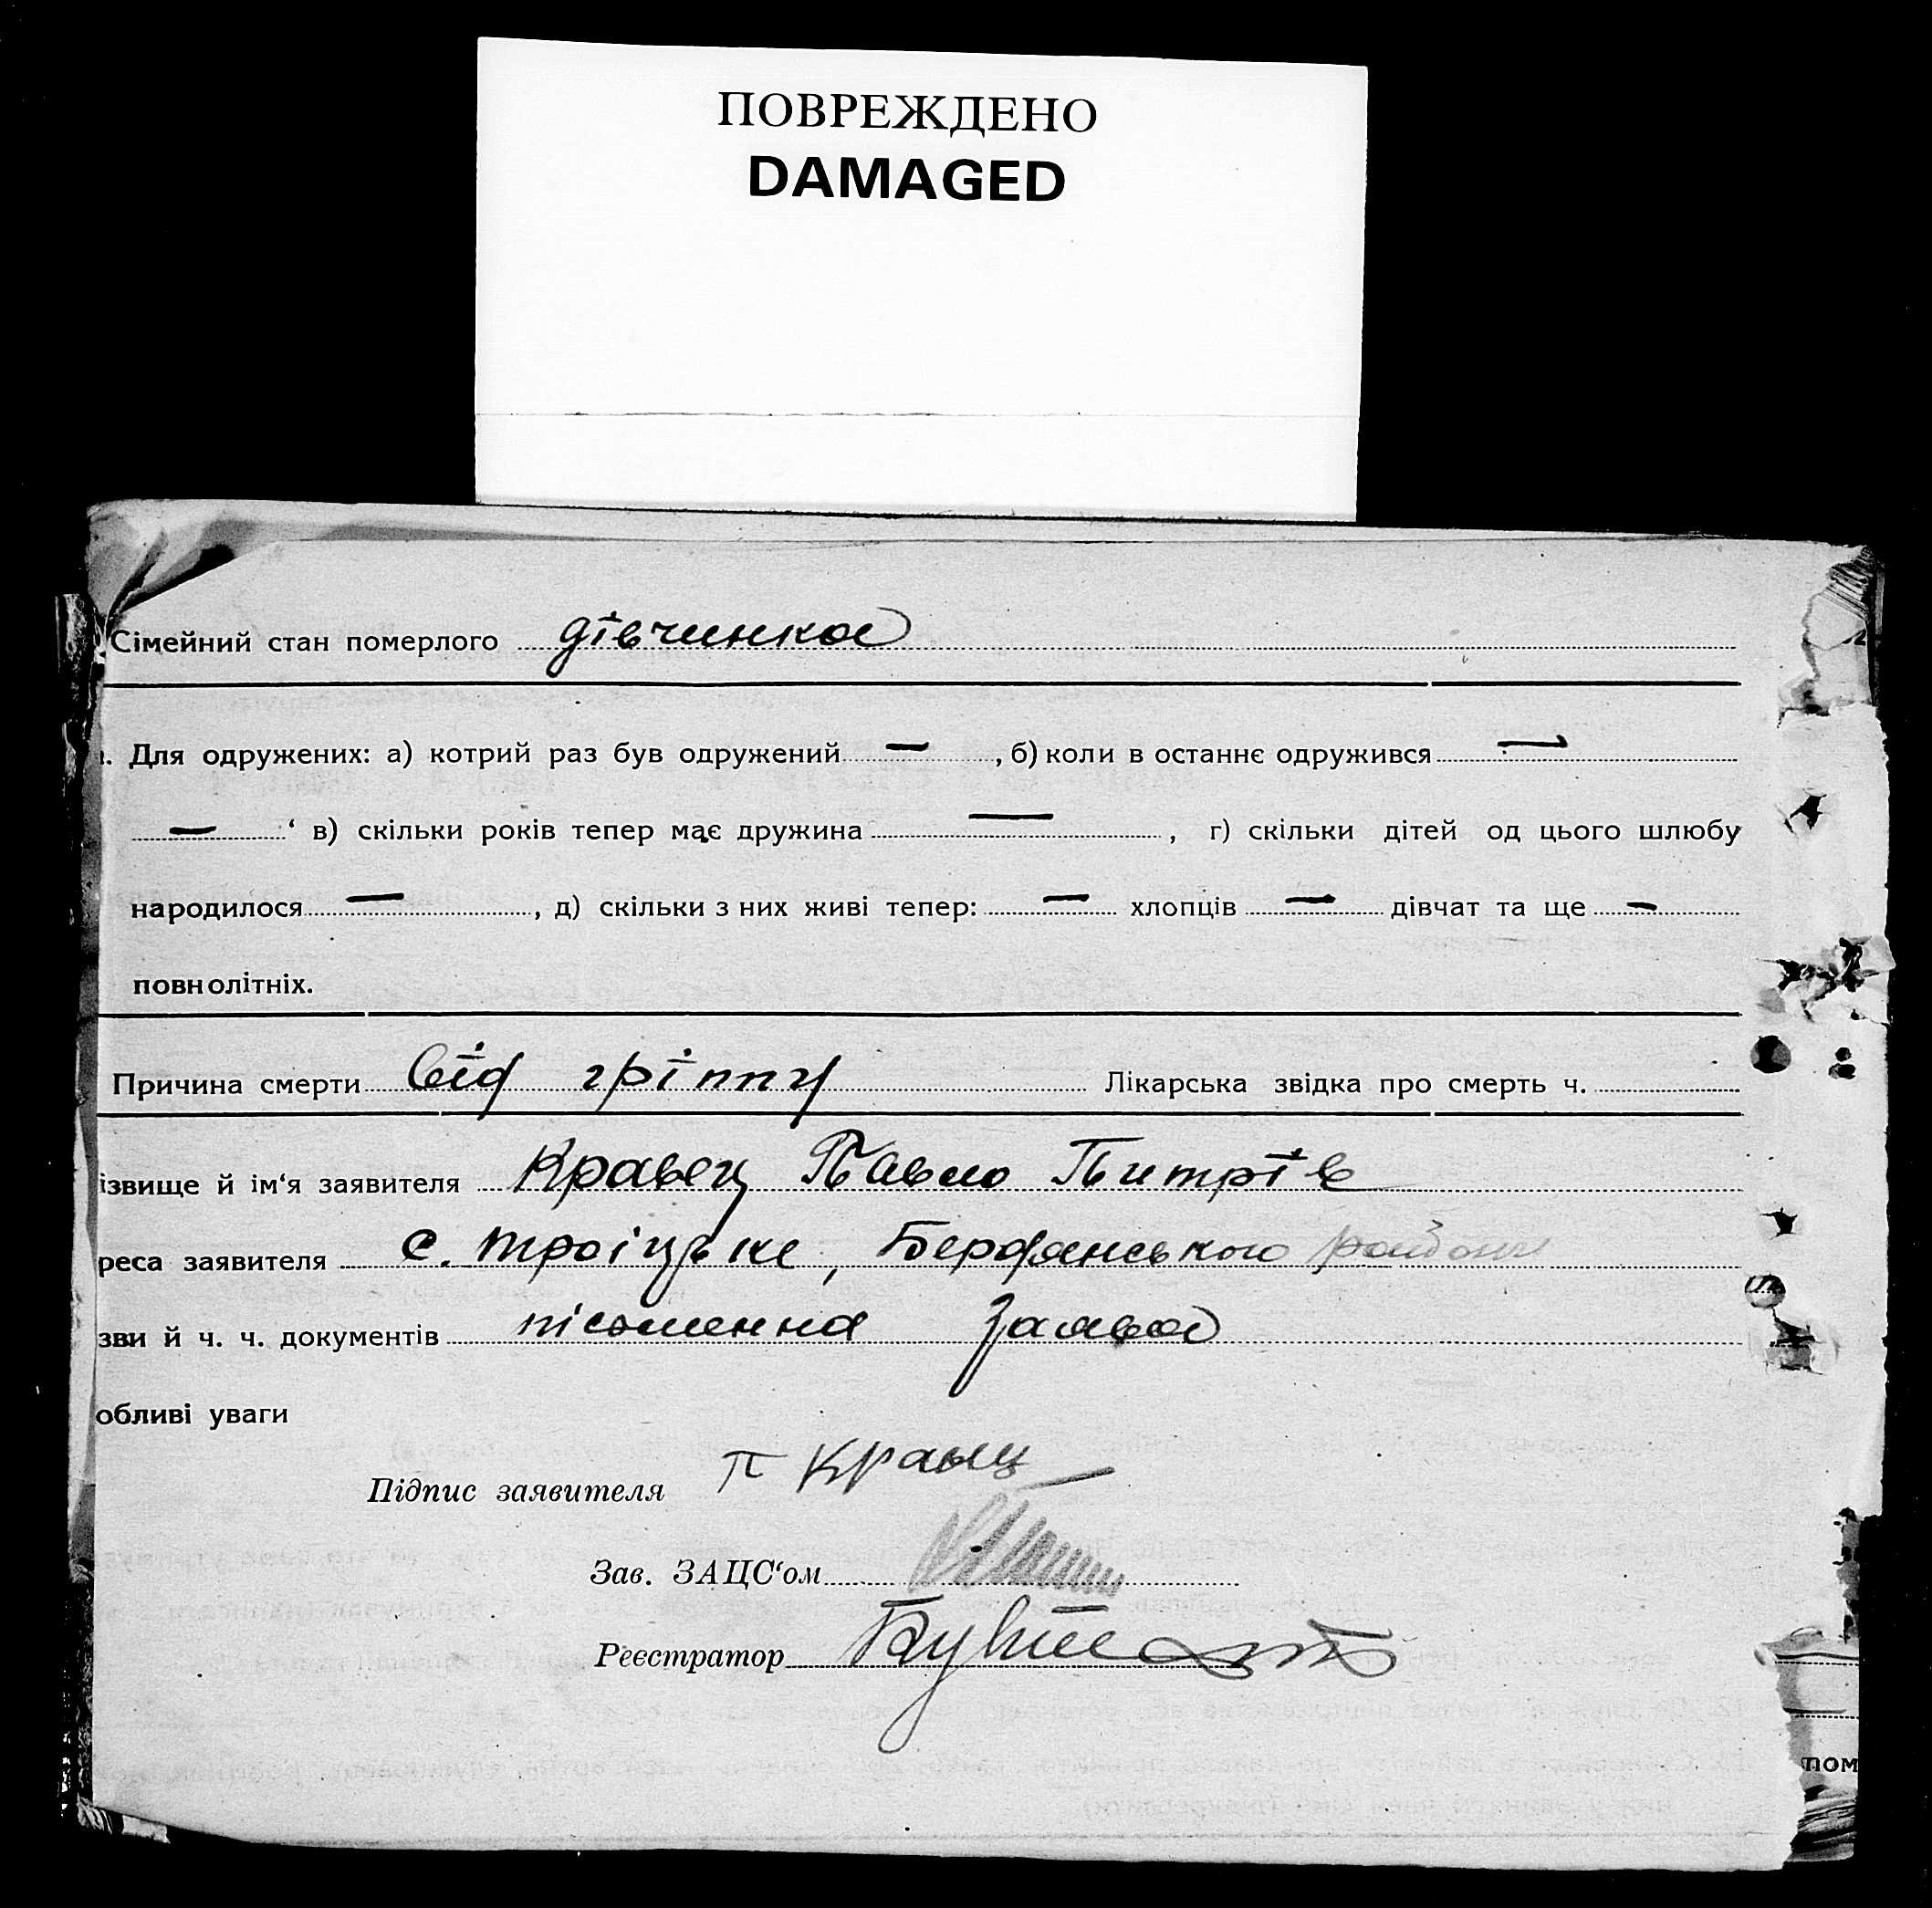 ПОВРЕЖДЕНО
DAMAGED
Сімейний стан померлого дівчинка
Для одружених: а) котрий раз був одружений —, б) коли в останнє одружився —
— ‘ в) скільки років тепер має дружина —, г) скільки дітей од цього шлюбу
народилося —, д) скільки з них живі тепер: — хлопців — дівчат та ще —
повнолітніх.
Причина смерти від гріппу Лікарська звідка про смерть ч.
ізвище й ім‘я заявителя Кравец Павло
реса заявителя с. Троіцьке, Бердянського району
зви й ч. ч. документів пісьменна заява
обливі уваги
Підпис заявителя П Кравец
Зав. ЗАЦС‘ом
Реєстратор
пом